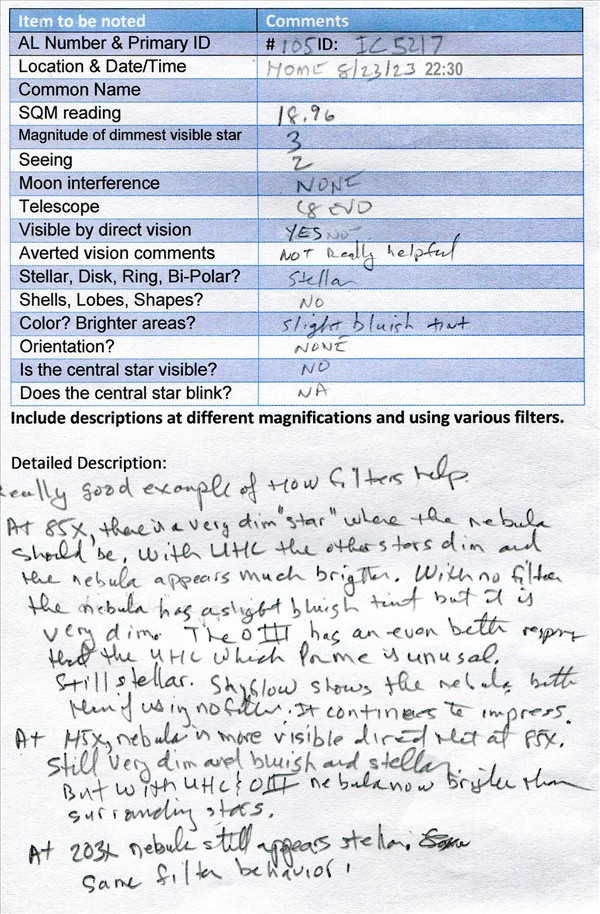 Item to be noted Comments
AL Number & Primary ID # 105 ID: IC 5217
Location & Date/Time HOME 8/23/23 22:30
Common Name
SQM reading 18.96
Magnitude of dimmest visible star 3
Seeing 2
Moon interference NONE
Telescope C8 EVO
Visible by direct vision YES
Averted vision comments NOT Really helpful
Stellar, Disk, Ring, Bi-Polar? Stellar
Shells, Lobes, Shapes? NO
Color? Brighter areas? slight bluish tint
Orientation? NONE
Is the central star visible? NO
Does the central star blink? NA
Include descriptions at different magnifications and using various filters.
Detailed Description:
Really good example of How filters help.
At 85X, there is a very dim "star" where the nebula
should be, With UHC the other stars dim and
the nebula appears much brigter. With no filter
the nebula has a slight bluish tint but it is
very dim. The OIII has an even bettr
the UHC which for me is unusal.
Still stellar. Skyglow shows the nebula bettr
then if using no filter. It continues to impress.
At 145X, nebula is more visible direct at 85X.
Still very dim and bluish and stellar
But with UHC & OIII nebula now brigter than
surrounding stars.
At 203X nebula still appears stellar.
Same filter behavior!